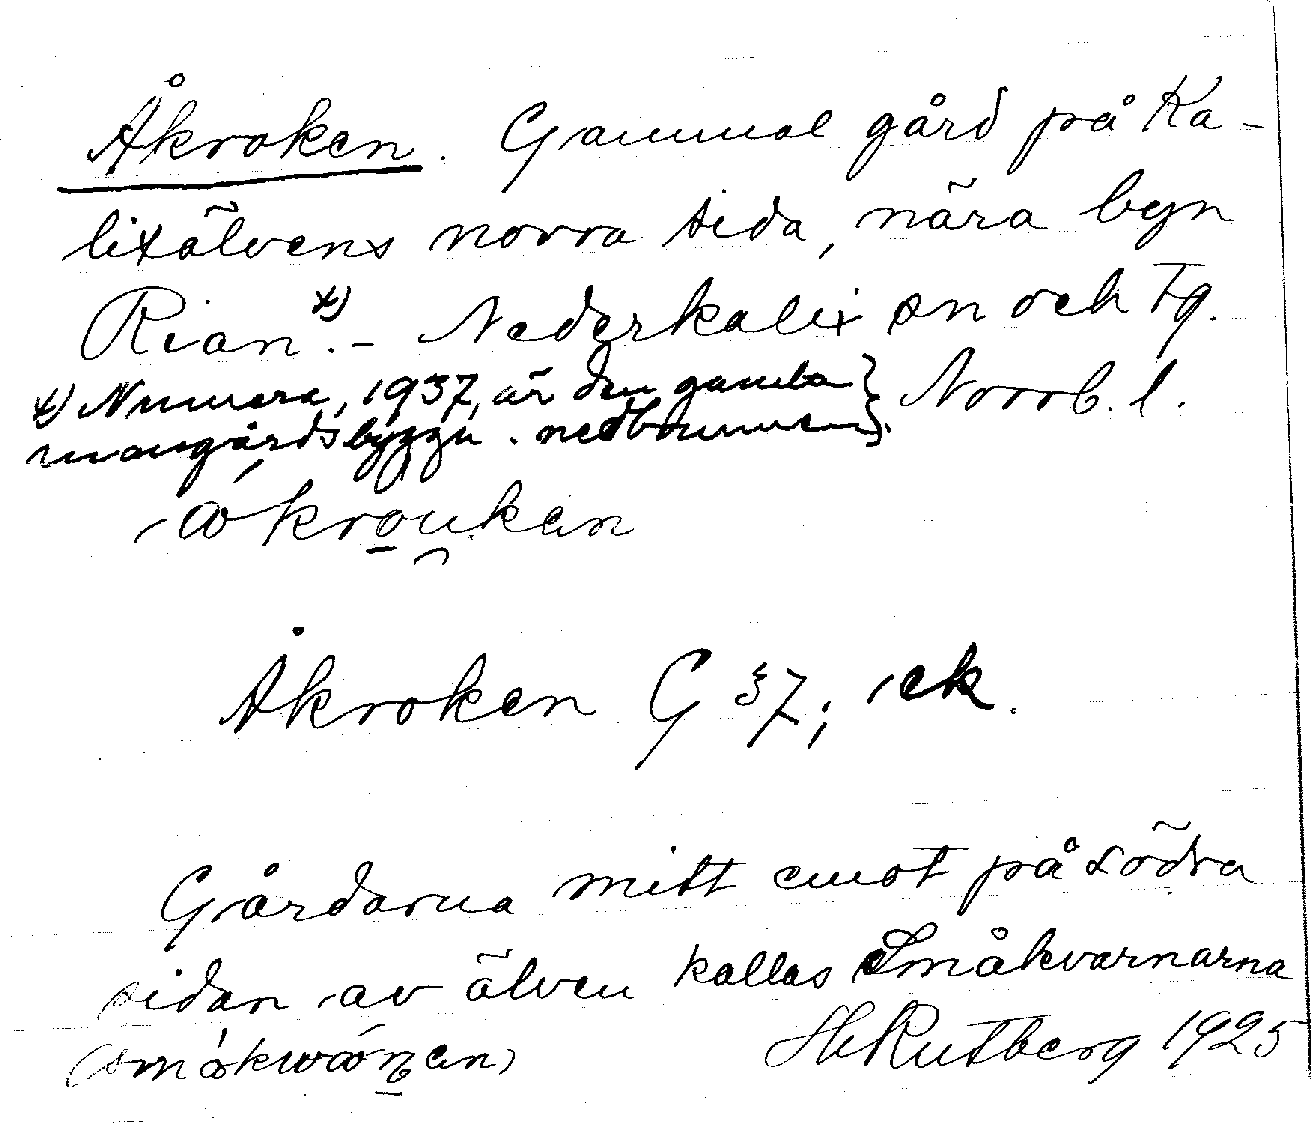 Åkroken. Gammal gård på Ka-
lixälvens norra sida, nära byn
Rian.x) – Nederkalix sn och Tg.
Norrb. l.
x) Numera, 1937, är den gamla
mangårdsbyggn. nedbrunnen.
Åkroken G 37; ek.
Gårdarna mitt emot på södra
sidan av älven kallas Småkvarnarna
H Rutberg 1925